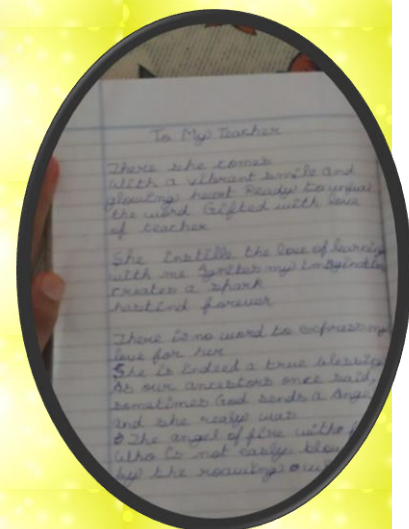 To My Teacher
There she comes
With a vibrant smile and
glowing heart Ready to unfual
the word Gifted with love
of teacher
She Instills the love of learning
with me Ignites my Imagination
creates a spark
hastind forever
There is no word to express my
love for her
She is Indeed a true blessing
As our ancestors once said,
sometimes God sends a Angel
and she realy was
The angel of fire with
Who is not easily blow
by the roawing